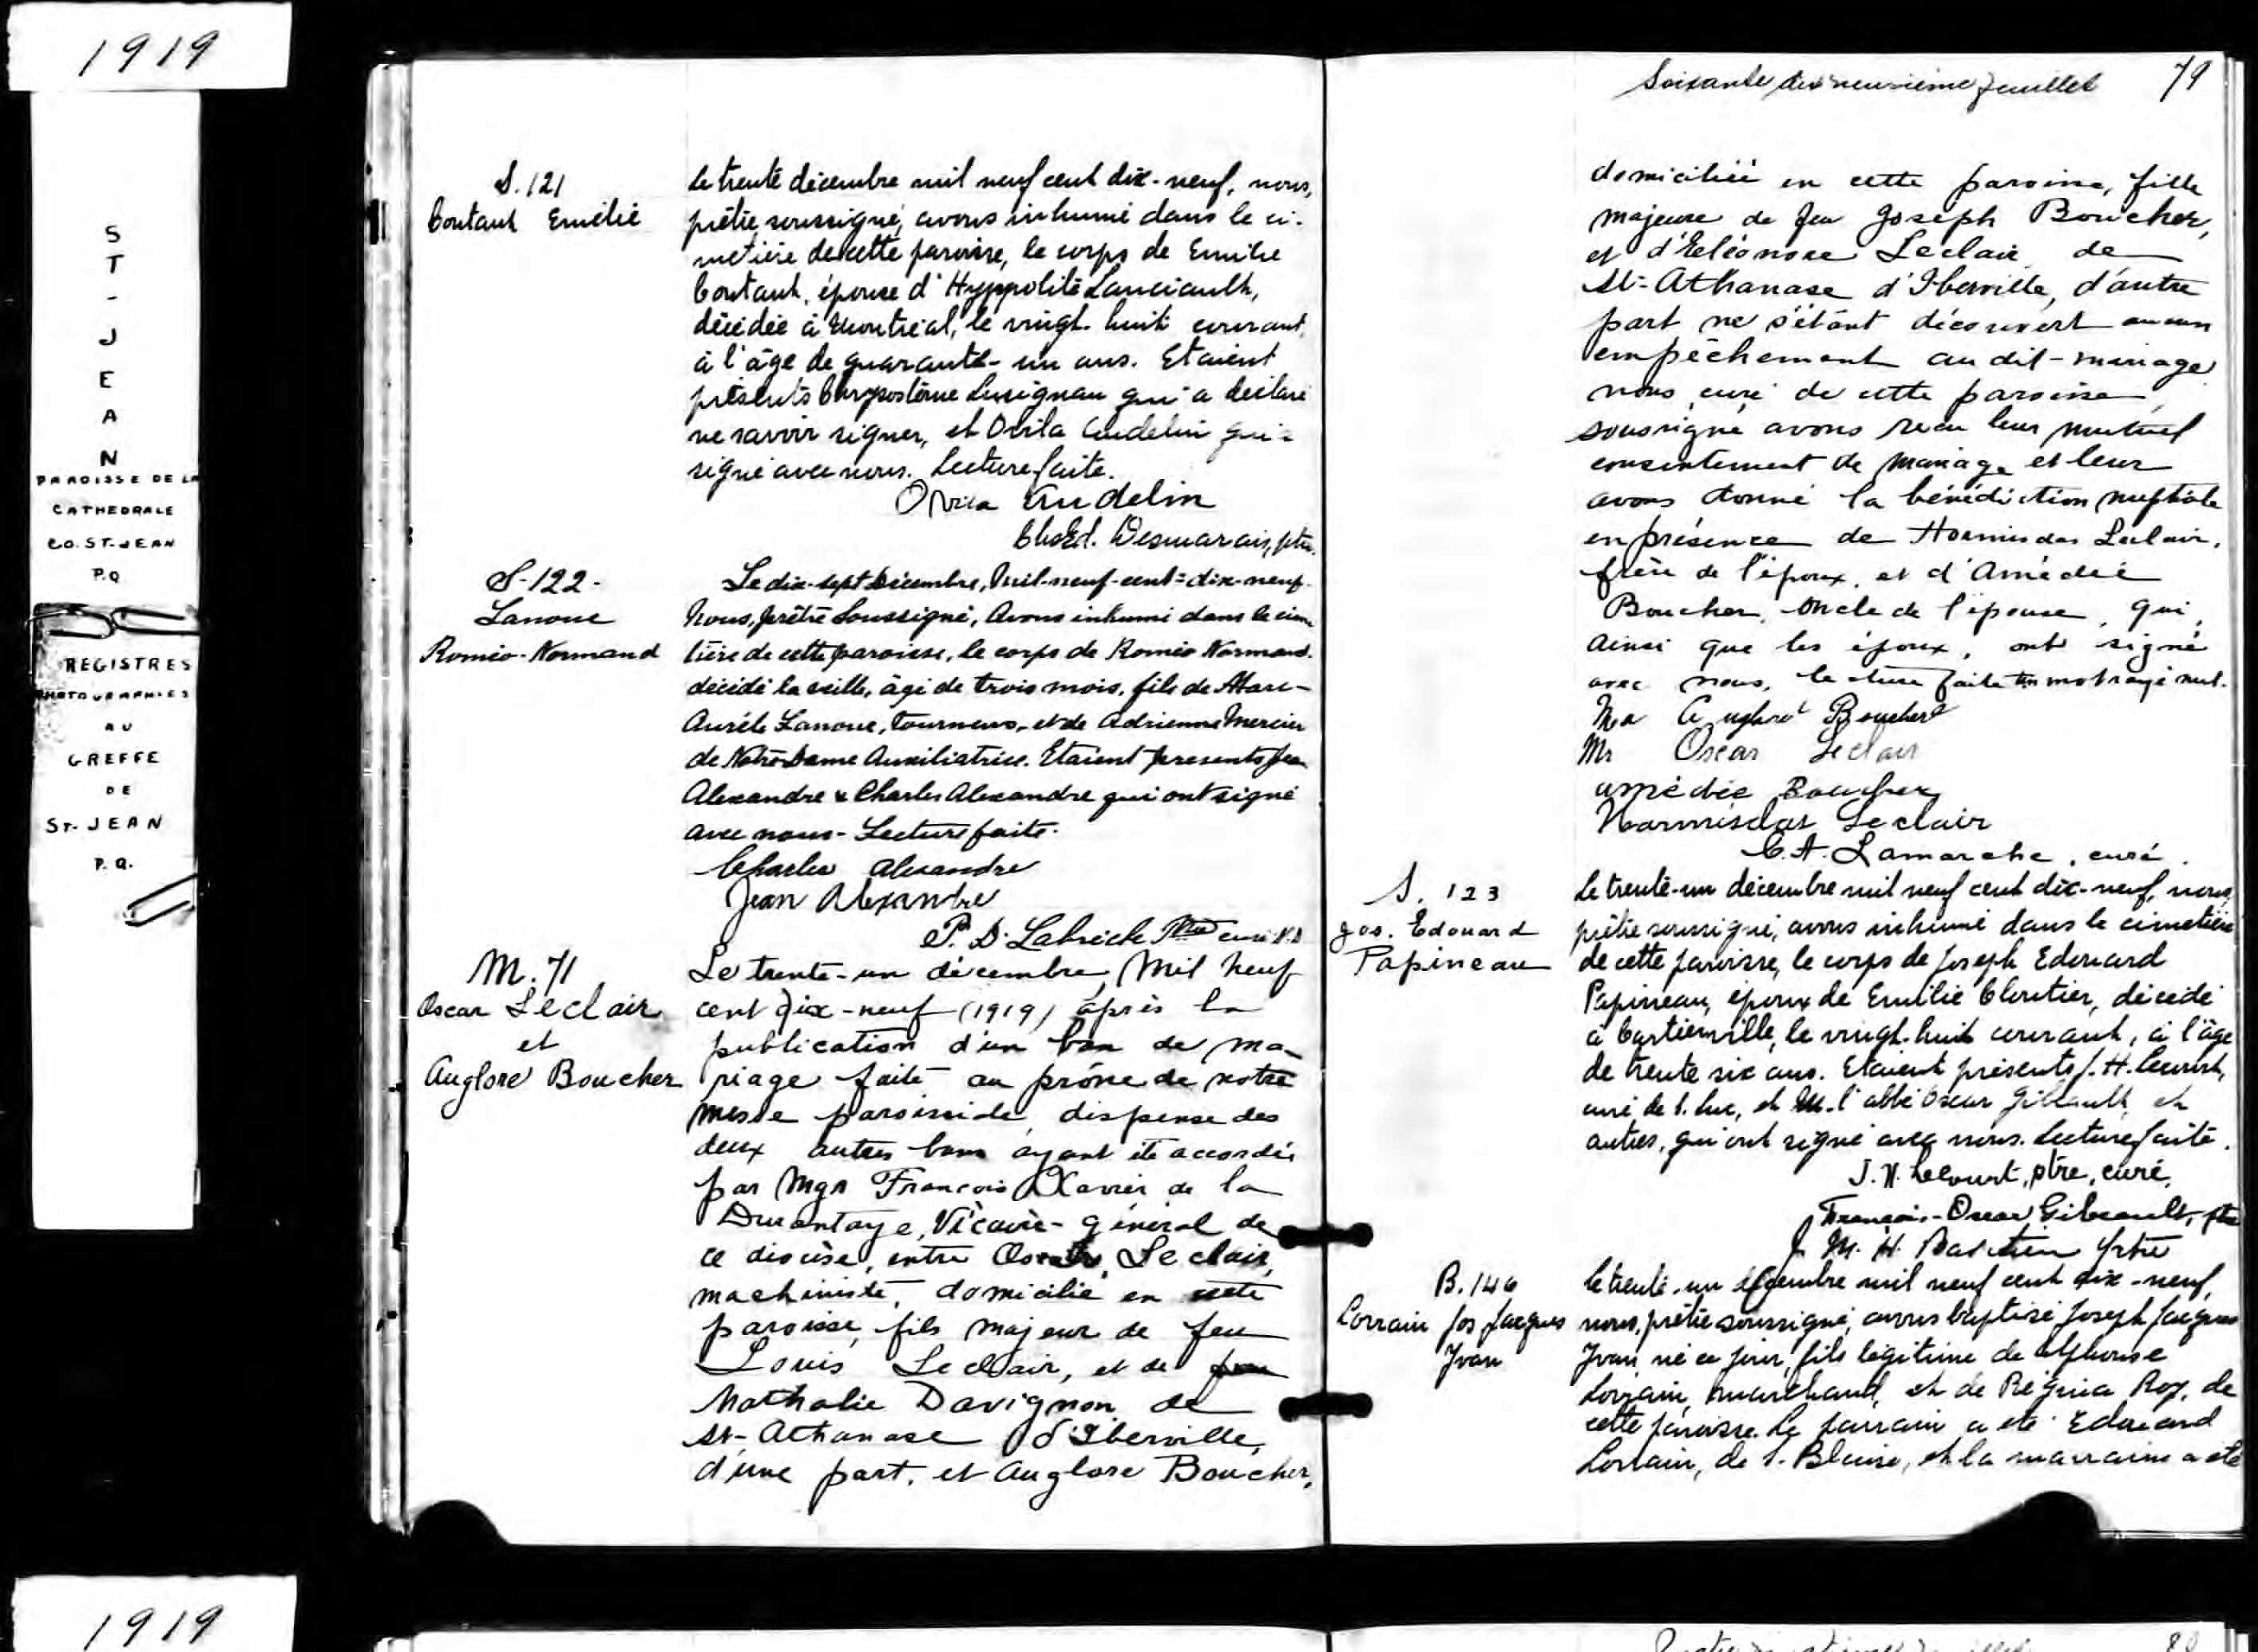 1919
ST-JEAN
PAROISSE DE LA
CATHEDRALE
CO. ST-JEAN
P.Q
REGISTRES
PHOTOGRAPHIES
AU
GREFFE
DE
ST-JEAN
P.Q.
1919
S. 121
Coutant Emélie
Le trente décembre mil neuf cent dix-neuf, nous,
prêtre soussigné, avons inhumé dans le ci-
metière de cette paroisse, le corps de Emilie
Coutant, épouse d'Hyppolite Lanciault,
décédée à Montréal, le vingt-huit courant,
à l'âge de quarante-un ans. Etaient
présents Chrysostôme Lusignan qui a déclaré
ne savoir signer, et Ovila Audelin qui a
signé avec nous. Lecture faite.
Ovila Audelin
Chs Ed. Desmarais, ptre.
S-122-
Lanoue
Roméo-Normand
Le dix-sept Décembre, Mil-neuf-cent-dix-neuf.
Nous, prêtre Soussigné, Avons inhumé dans le cime
tière de cette paroisse, le corps de Roméo Normand.
décédé la veille, âgé de trois mois, fils de Marc-
Aurèle Lanoue, tourneur, et de Adrienne Mercier
de Notre-Dame Auxiliatrice. Etaient présents Jean
Alexandre & Charles Alexandre qui ont signé
avec nous- Lecture faite.
Charles Alexandre
Jean Alexandre
P. D. Labrèche Ptre curé N.D
M. 71
Oscar Leclair
et
Auglore Boucher
Le trente-un décembre, Mil neuf
cent dix-neuf (1919) après la
publication d'un ban de ma-
riage faite au prône de notre
messe paroissiale, dispense des
deux autres bans ayant été accordée
par Mgr François Xavier de la
Durantaye, Vicaire-général de
ce diocèse, entre Oscar Leclair,
machiniste, domicilié en cette
paroisse, fils majeur de feu
Louis Leclair, et de feu
Nathalie Davignon de
St-Athanase d'Iberville,
d'une part, et Auglore Boucher,
Soixante dix neuvième feuillet 79
domiciliée en cette paroisse, fille
majeure de feu Joseph Boucher,
et d'Eléonore Leclair de
St-Athanase d'Iberville, d'autre
part ne s'étant découvert aucun
empêchement au dit-mariage
nous, curé de cette paroisse
soussigné avons reçu leur mutuel
consentement de mariage et leur
avons donné la bénédiction nuptiale
en présence de Hormisdas Leclair,
frère de l'époux, et d'Amédée
Boucher, oncle de l'épouse, qui,
ainsi que les époux, ont signé
avec nous, lecture faite un mot rayé nul.
Boucher
Mr Oscar Leclair
Amédée Boucher
Harmisdas Leclair
C. A. Lamarche, curé.
S. 123
Jos. Edouard
Papineau
Le trente-un décembre mil neuf cent dix-neuf, nous,
prêtre soussigné, avons inhumé dans le cimetière
de cette paroisse, le corps de Joseph Edouard
Papineau, époux de Emilie Cloutier, décédé
à Cartierville, le vingt-huit courant, à l'âge
de trente six ans. Etaient présents J. H. Lecourt,
curé de S. Luc, et M. l'abbé Oscar Gibeault, et
autres, qui ont signé avec nous. Lecture faite.
J. H. Lecourt, ptre, curé,
François-Oscar Gibeault, ptre
J. M. H. Bastien ptre
B. 146
Lorrain Jos Jacques
Yvan
Le trente-un décembre mil neuf cent dix-neuf,
nous, prêtre soussigné, avons baptisé Joseph Jacques
Yvan né ce jour, fils légitime de Alphonse
Lorrain, marchand, et de Régina Roy, de
cette paroisse. Le parrain a été Edouard
Lorrain, de S. Blaise, et la marraine a été